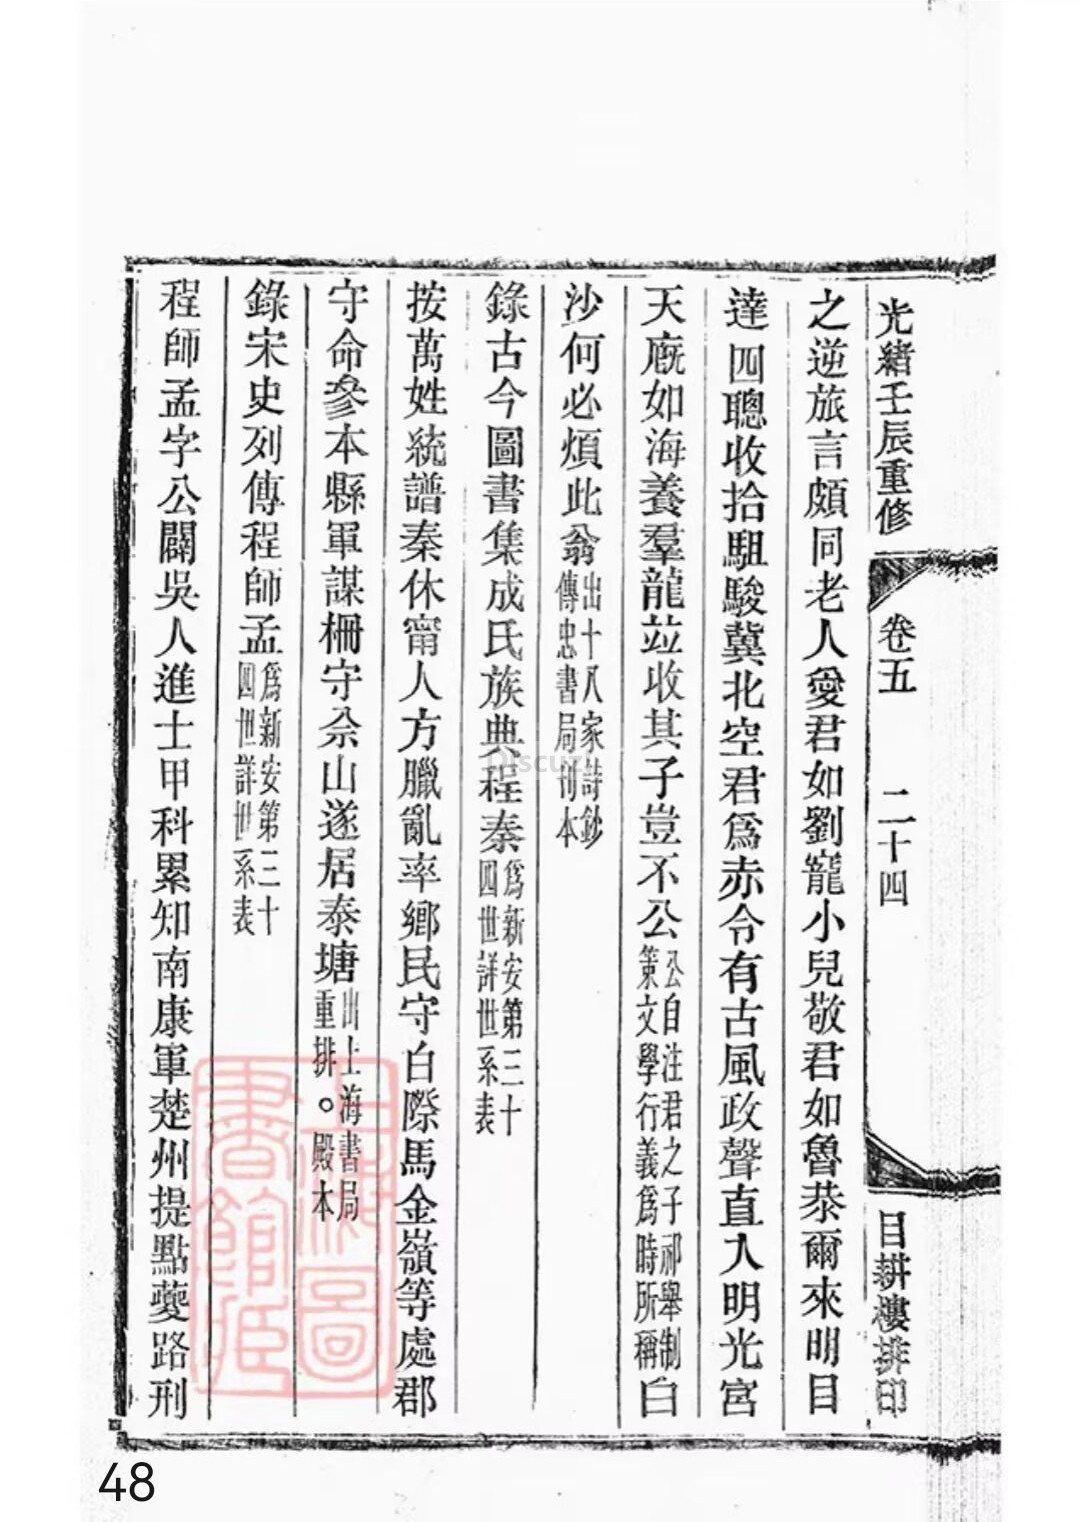 光緒壬辰重修 卷五 二十四 目耕樓排印
之逆旅言頗同老人愛君如劉寵小兒敬君如魯恭爾來明目
達四聰收拾駔駿冀北空君爲赤令有古風政聲直入明光宮
天廐如海養羣龍竝收其子豈不公公自注君之子祁舉制策文學行義爲時所稱白
沙何必煩此翁出十八家詩鈔傳忠書局刊本
錄古今圖書集成氏族典程秦爲新安第三十四世詳世系表
按萬姓統譜秦休甯人方臘亂率鄉民守白際馬金嶺等處郡
守命參本縣軍謀柵守尒山遂居泰塘出上海書局重排。殿本
錄宋史列傳程師孟爲新安第三十四世詳世系表
程師孟字公闢吳人進士甲科累知南康軍楚州提點夔路刑
上海圖書館藏
Discuz!
48